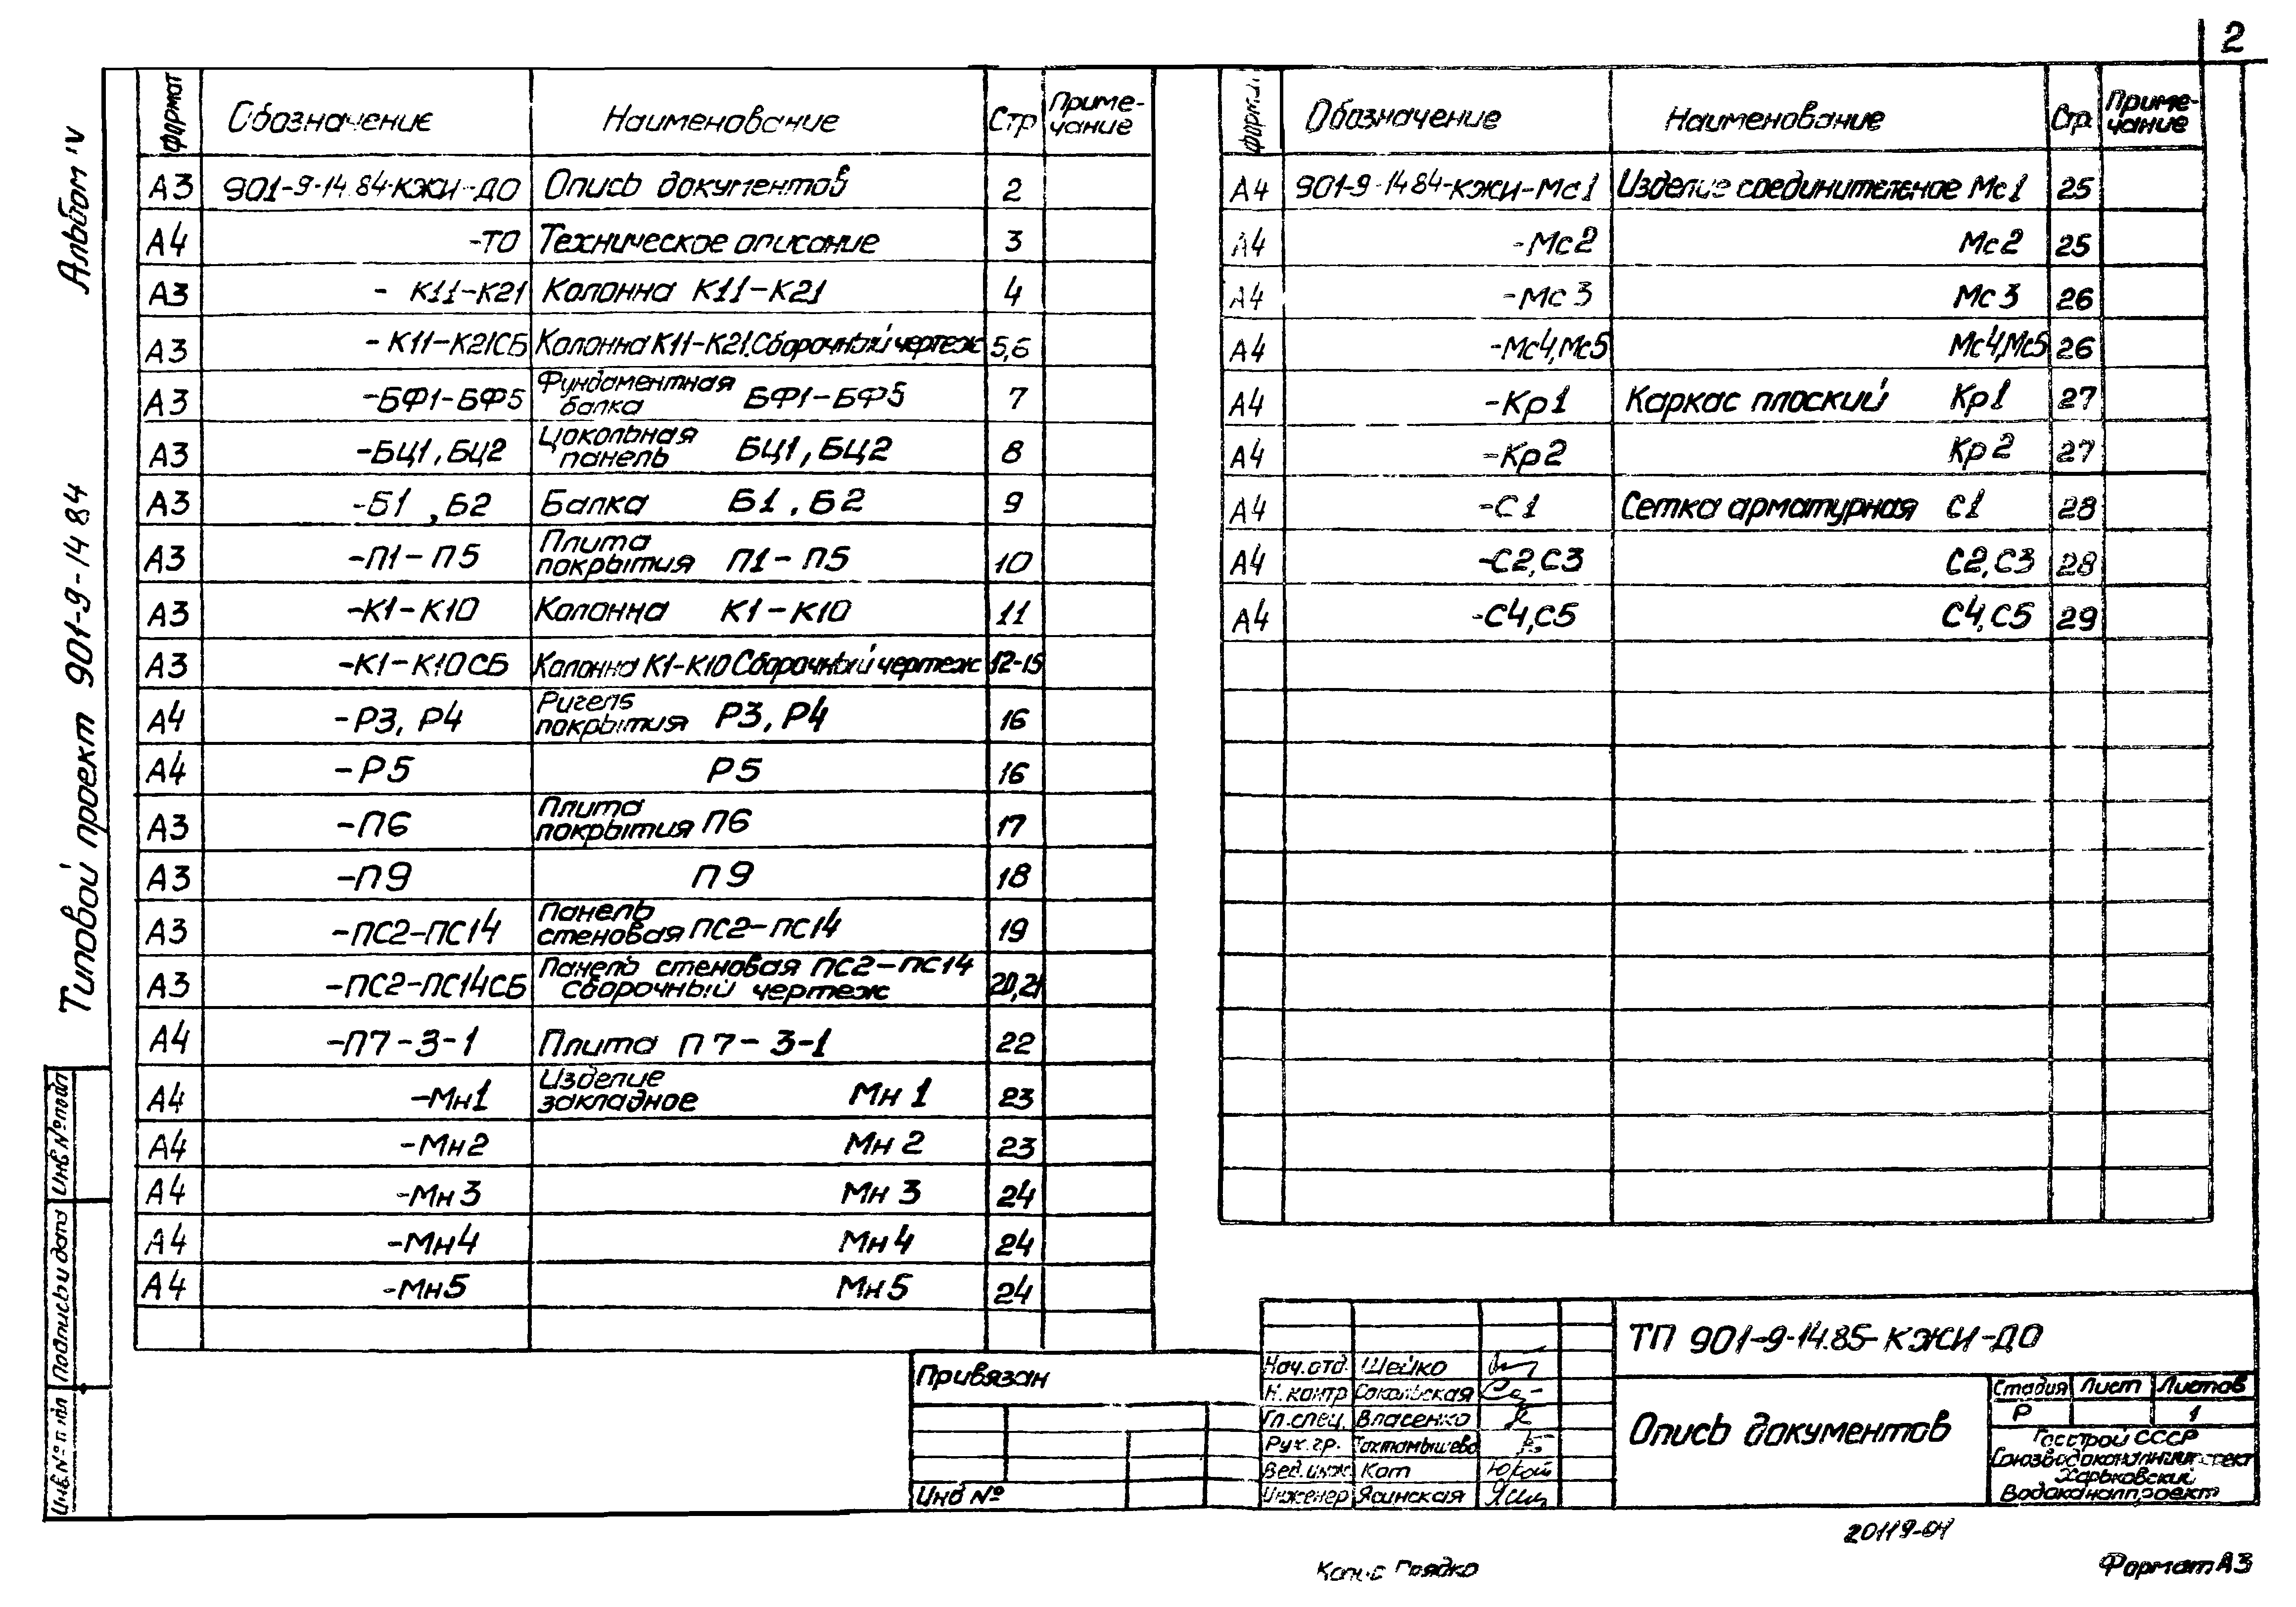 2
Альбом IV
Типовой проект 901-9-14 84
Инв № подл
Подпись и дата
Инв. № п
Формат Обозначение Наименование Стр Приме-
чание
А3 901-9-14.84-КЖИ-ДО Опись документов 2
А4 -ТО Техническое описание 3
А3 - К11-К21 Колонна К11-К21 4
А3 - К11-К21СБ Колонна К11-К21. Сборочный чертеж 5,6
А3 -БФ1-БФ5 Фундаментная
балка БФ1-БФ5 7
А3 -БЦ1, БЦ2 Цокольная
панель БЦ1, БЦ2 8
А3 -Б1, Б2 Балка Б1, Б2 9
А3 -П1-П5 Плита
покрытия П1-П5 10
А3 -К1-К10 Колонна К1-К10 11
А3 -К1-К10СБ Колонна К1-К10 Сборочный чертеж 12-15
А4 -Р3, Р4 Ригель
покрытия Р3, Р4 16
А4 -Р5 Р5 16
А3 -П6 Плита
покрытия П6 17
А3 -П9 П9 18
А3 -ПС2-ПС14 Панель
стеновая ПС2-ПС14 19
А3 -ПС2-ПС14СБ Панель стеновая ПС2-ПС14
сборочный чертеж 20,21
А4 -П7-3-1 Плита П7-3-1 22
А4 -Мн1 Изделие
закладное Мн 1 23
А4 -Мн2 Мн 2 23
А4 -Мн3 Мн 3 24
А4 -Мн4 Мн 4 24
А4 -Мн5 Мн 5 24
Обозначение Наименование Стр. Приме-
чание
А4 901-9-14 84-КЖИ-Мс1 Изделие соединительное Мс1 25
А4 -Мс2 Мс2 25
А4 -Мс3 Мс3 26
А4 -Мс4, Мс5 Мс4, Мс5 26
А4 -Кр1 Каркас плоский Кр1 27
А4 -Кр2 Кр2 27
А4 -С1 Сетка арматурная С1 28
А4 -С2, С3 С2, С3 28
А4 -С4, С5 С4, С5 29
Привязан
Инв №
Нач.отд. Шейко
Н.контр Сокольская
Гл.спец. Власенко
Рук.гр. Тохтамышева
Вед.инж Кот
Инженер Ясинская
ТП 901-9-14.85-КЖИ-ДО
Опись документов
Стадия Лист Листов
Р 1
Госстрой СССР
Союзводоканалниипроект
Харьковский
Водоканалпроект
20119-04
Грядко
Формат А3